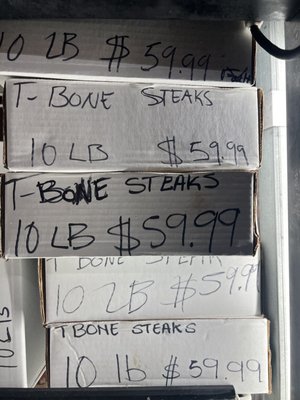 10 LB $59.99
T-BONE STEAKS
10 LB $59.99
T-BONE STEAKS
10 LB $59.99
T BONE STEAK
10 LB $59.99
T BONE STEAKS
10 lb $59.99
10 LB